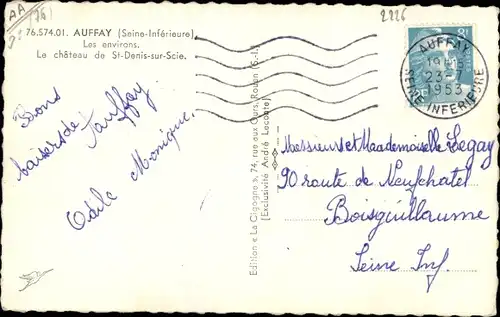 AA
(76)
2226
76.574.01. AUFFAY (Seine-Inférieure).
Les environs.
Le château de St-Denis-sur-Scie.
AUFFAY
23-
1953
SEINE INFERIEURE
Bons
baisers de Auffay.
Odile Monique.
Edition « La Cigogne », 74, rue aux Ours, Rouen (S.-I.)
(Exclusivité André Lecomte)
Messieurs et Mademoiselle Legay
90 route de Neufchatel
Boisguillaume
Seine Inf.